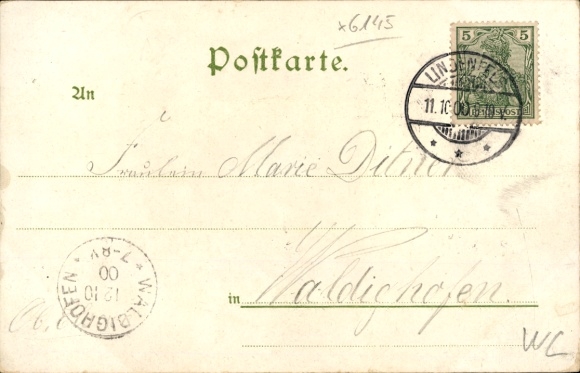 *6145
5
Postkarte.
LINDENFELS
11.10.00
REICHSPOST
An
Fräulein Marie Ditner
WALDIGHOFEN
12 10
00
7-8V
in Waldighofen.
WC